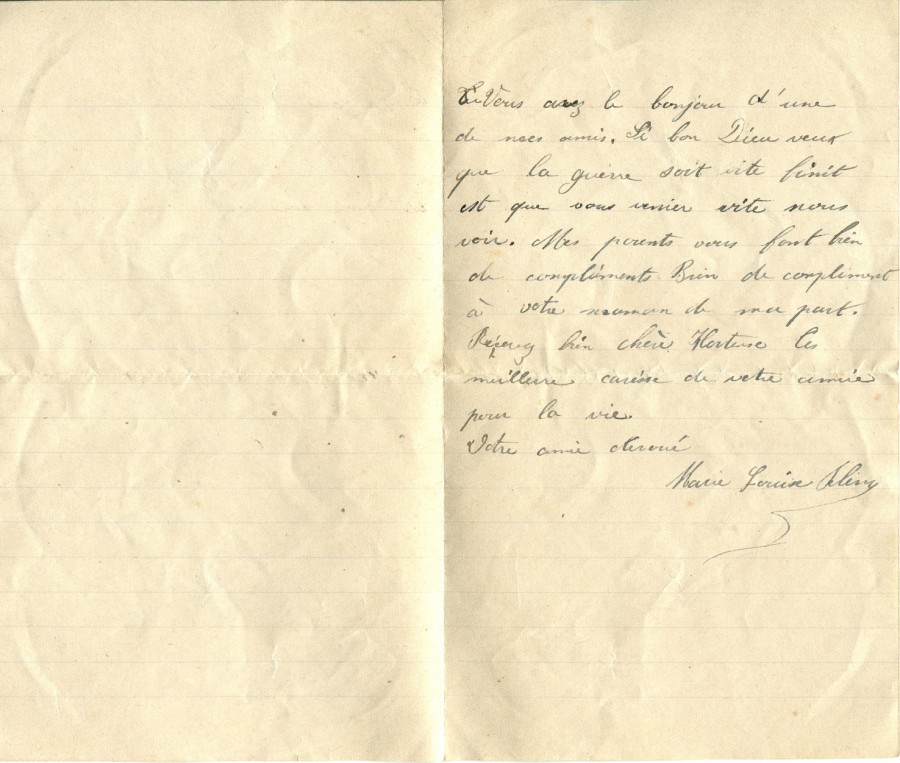 Vous avez le bonjour d'une
de nees amis. Si bon Dieu veux
que la guerre soit vite finit
est que vous venier vite nous
voir. Mes parents vous font bien
de compléments Bien de compliment
à votre maman de ma part.
bien chère Hortense les
meilleure caresse de votre amie
pour la vie.
Votre amie devoué
Marie Louise